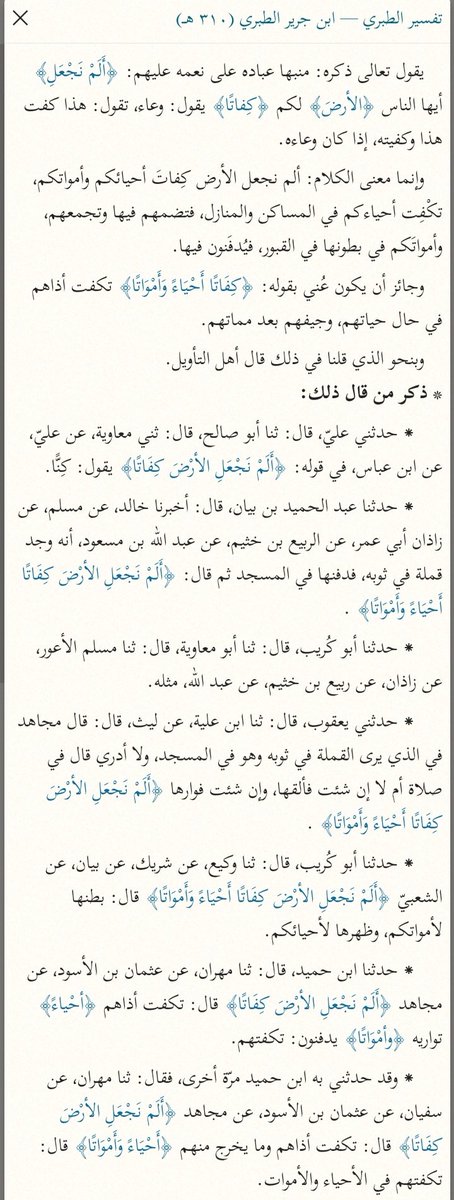 تفسير الطبري — ابن جرير الطبري (٣١٠ هـ)
يقول تعالى ذكره: منبها عباده على نعمه عليهم: ﴿أَلَمْ نَجْعَلِ﴾
أيها الناس ﴿الأرضَ﴾ لكم ﴿كِفاتًا﴾ يقول: وعاء، تقول: هذا كفت
هذا وكفيته، إذا كان وعاءه.
وإنما معنى الكلام: ألم نجعل الأرض كِفاتَ أحيائكم وأمواتكم،
تكْفِت أحياءكم في المساكن والمنازل، فتضمهم فيها وتجمعهم،
وأمواتَكم في بطونها في القبور، فيُدفَنون فيها.
وجائز أن يكون عُني بقوله: ﴿كِفَاتًا أَحْيَاءً وَأَمْوَاتًا﴾ تكفت أذاهم
في حال حياتهم، وجيفهم بعد مماتهم.
وبنحو الذي قلنا في ذلك قال أهل التأويل.
* ذكر من قال ذلك:
* حدثني عليّ، قال: ثنا أبو صالح، قال: ثني معاوية، عن عليّ،
عن ابن عباس، في قوله: ﴿أَلَمْ نَجْعَلِ الأرْضَ كِفَاتًا﴾ يقول: كِنًّا.
* حدثنا عبد الحميد بن بيان، قال: أخبرنا خالد، عن مسلم، عن
زاذان أبي عمر، عن الربيع بن خثيم، عن عبد الله بن مسعود، أنه وجد
قملة في ثوبه، فدفنها في المسجد ثم قال: ﴿أَلَمْ نَجْعَلِ الأرْضَ كِفَاتًا
أَحْيَاءً وَأَمْوَاتًا﴾ .
* حدثنا أبو كُريب، قال: ثنا أبو معاوية، قال: ثنا مسلم الأعور،
عن زاذان، عن ربيع بن خثيم، عن عبد الله، مثله.
* حدثني يعقوب، قال: ثنا ابن علية، عن ليث، قال: قال مجاهد
في الذي يرى القملة في ثوبه وهو في المسجد، ولا أدري قال في
صلاة أم لا إن شئت فألقها، وإن شئت فوارها ﴿أَلَمْ نَجْعَلِ الأرْضَ
كِفَاتًا أَحْيَاءً وَأَمْوَاتًا﴾ .
* حدثنا أبو كُريب، قال: ثنا وكيع، عن شريك، عن بيان، عن
الشعبيّ ﴿أَلَمْ نَجْعَلِ الأرْضَ كِفَاتًا أَحْيَاءً وَأَمْوَاتًا﴾ قال: بطنها
لأمواتكم، وظهرها لأحيائكم.
* حدثنا ابن حميد، قال: ثنا مهران، عن عثمان بن الأسود، عن
مجاهد ﴿أَلَمْ نَجْعَلِ الأرْضَ كِفَاتًا﴾ قال: تكفت أذاهم ﴿أَحْياءً﴾
تواريه ﴿وأمْوَاتًا﴾ يدفنون: تكفتهم.
* وقد حدثني به ابن حميد مرّة أخرى، فقال: ثنا مهران، عن
سفيان، عن عثمان بن الأسود، عن مجاهد ﴿أَلَمْ نَجْعَلِ الأرْضَ
كِفَاتًا﴾ قال: تكفت أذاهم وما يخرج منهم ﴿أَحْيَاءً وَأَمْوَاتًا﴾ قال:
تكفتهم في الأحياء والأموات.